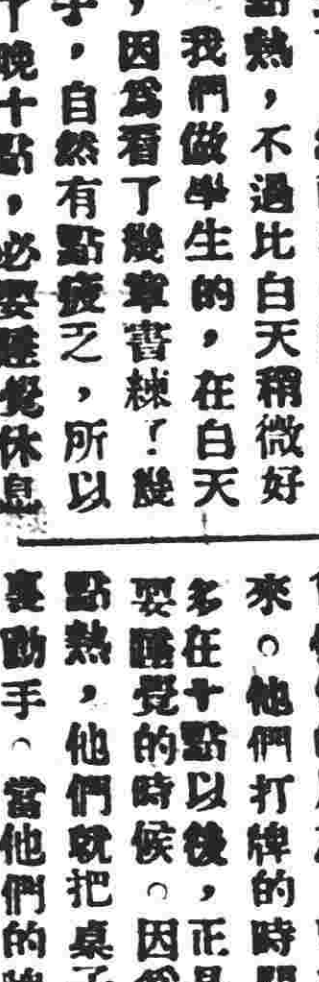 點熱，不過比白天稍微好
我們做學生的，在白天
，因爲看了幾章書練了幾
，自然有點疲乏，所以
晚十點，必要睡覺休息
來。他們打牌的時間
多在十點以後，正是
要睡覺的時候。因爲
點熱，他們就把桌子
裏動手。當他們的